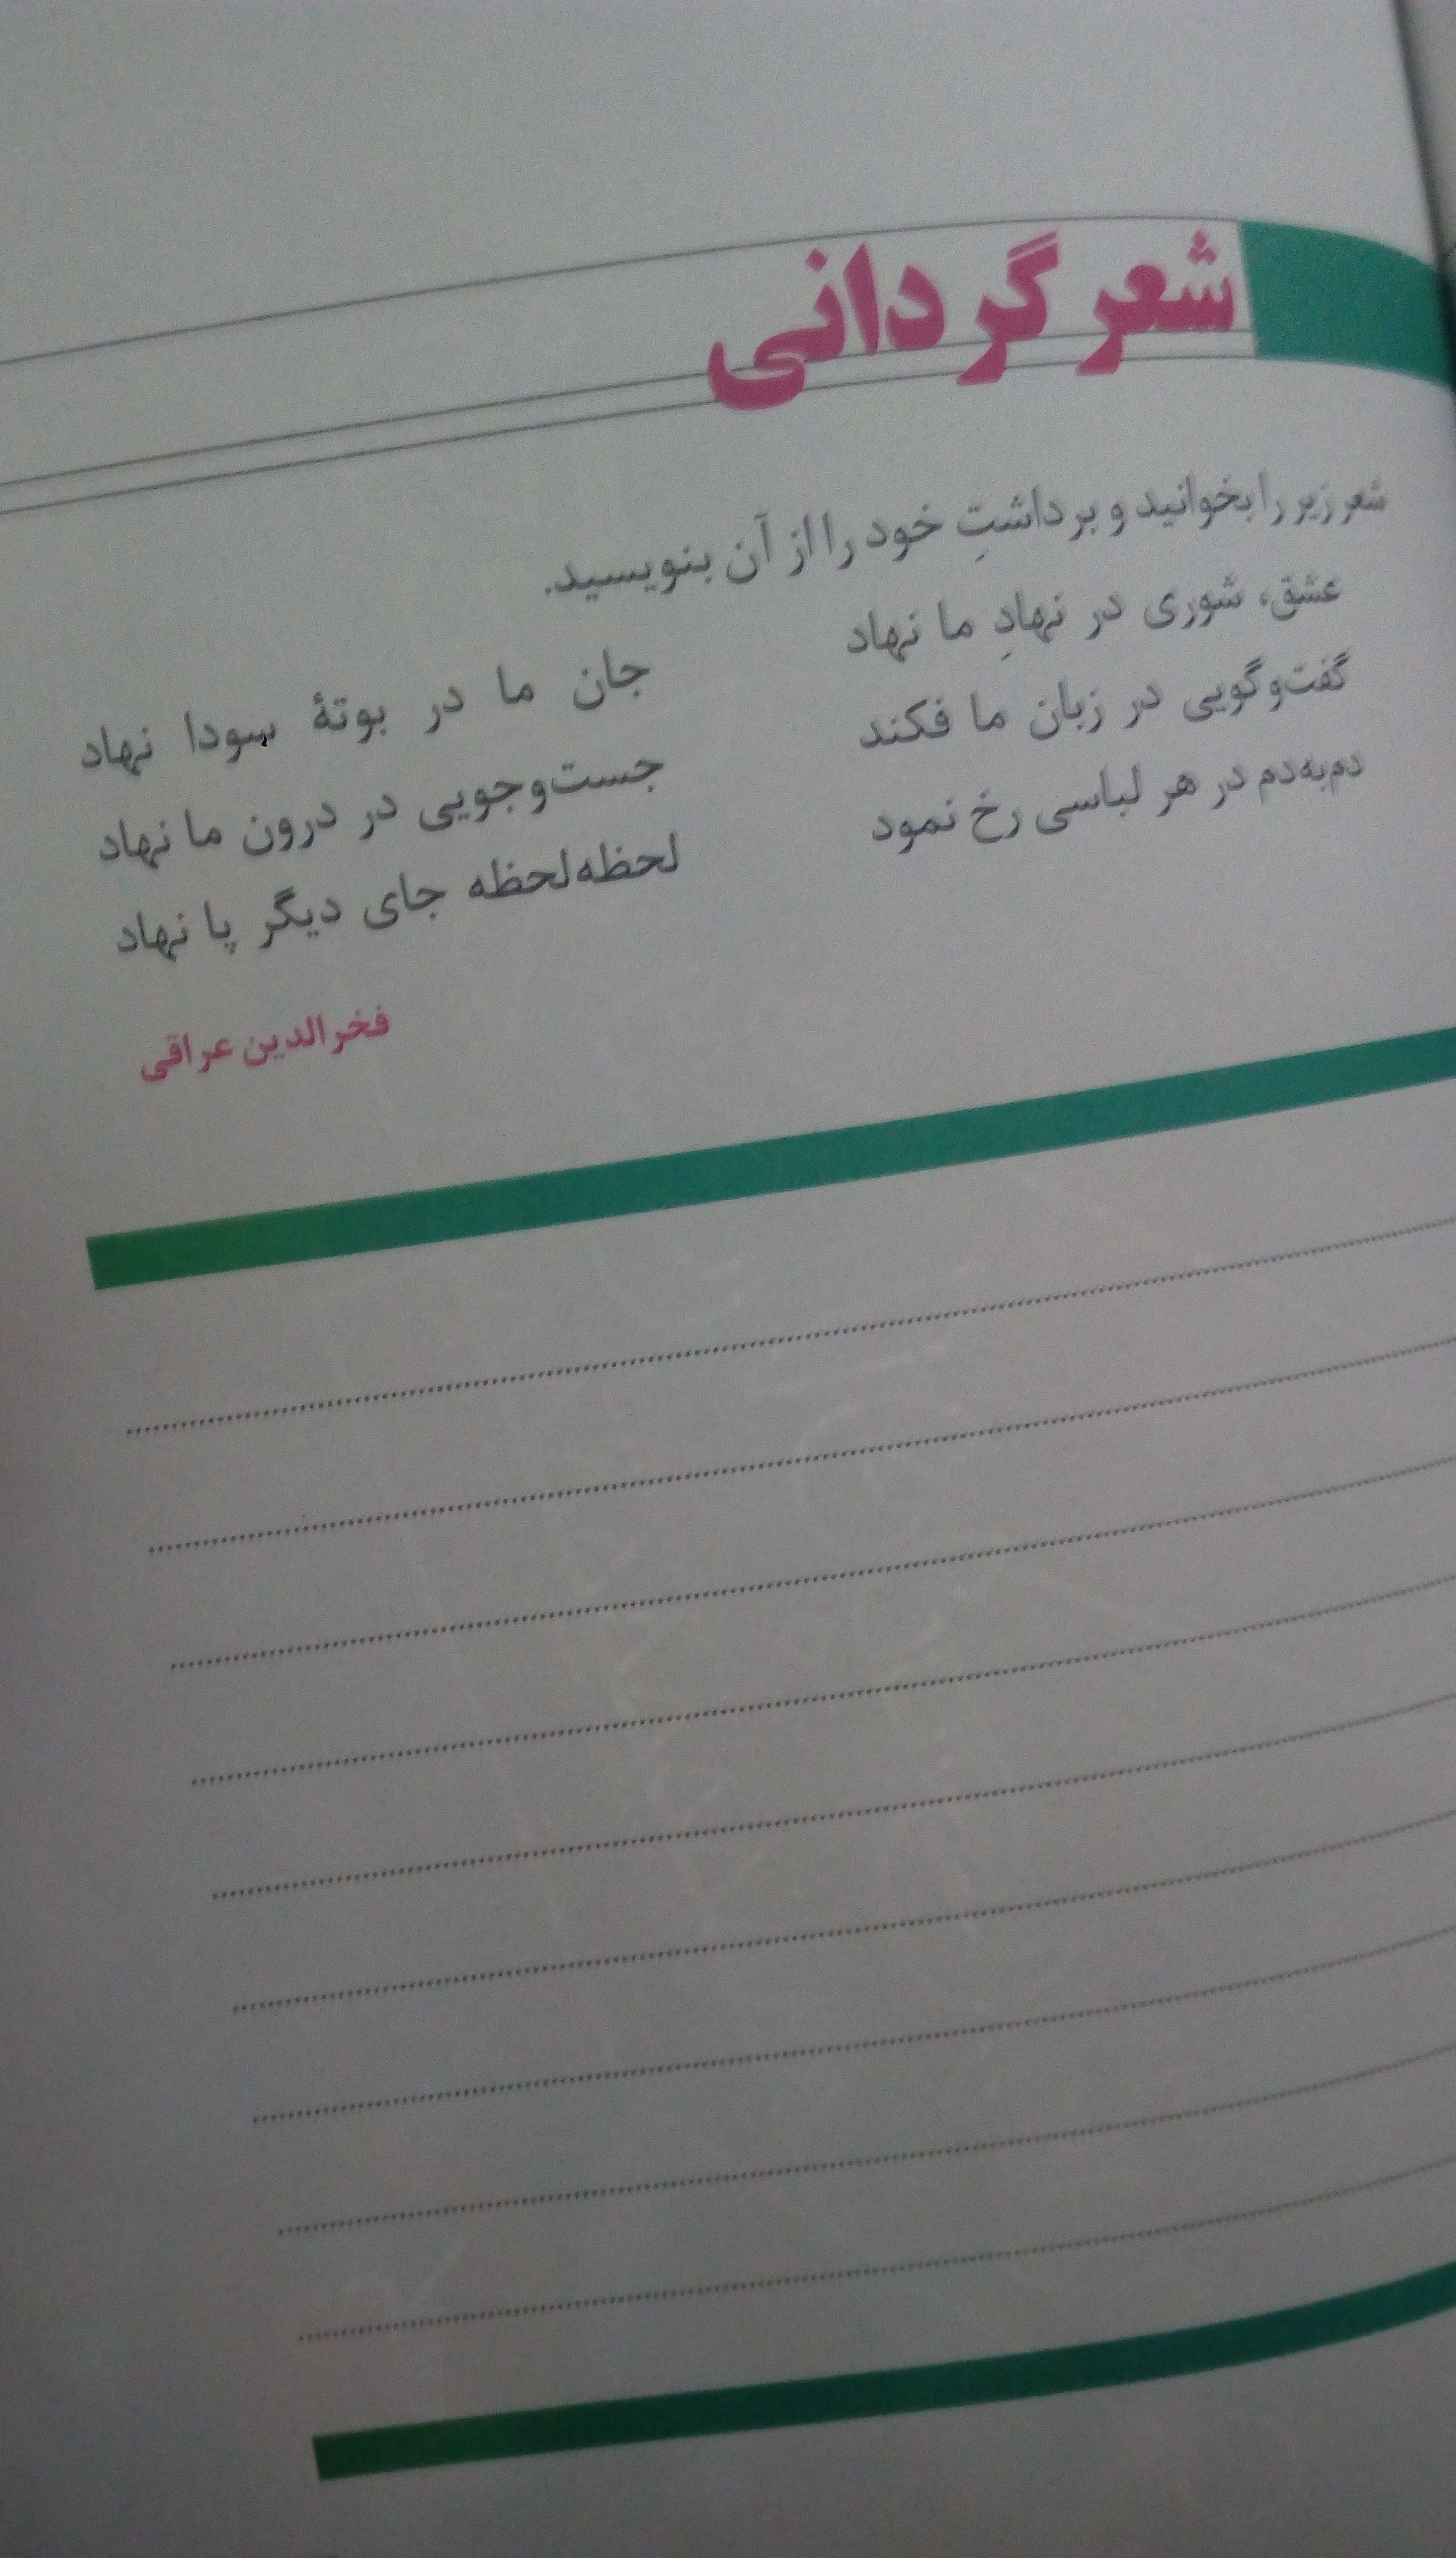 شعر گردانی
شعر زیر را بخوانید و برداشتِ خود را از آن بنویسید.
عشق، شوری در نهادِ ما نهاد
جان ما در بوتهٔ سودا نهاد
گفت‌وگویی در زبان ما فکند
جست‌وجویی در درون ما نهاد
دم‌به‌دم در هر لباسی رخ نمود
لحظه‌لحظه جای دیگر پا نهاد
فخرالدین عراقی